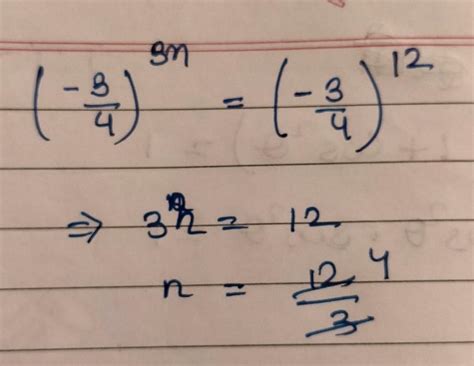 (-3/4)^3n = (-3/4)^12
⇒ 3n = 12
n = 12/3 4